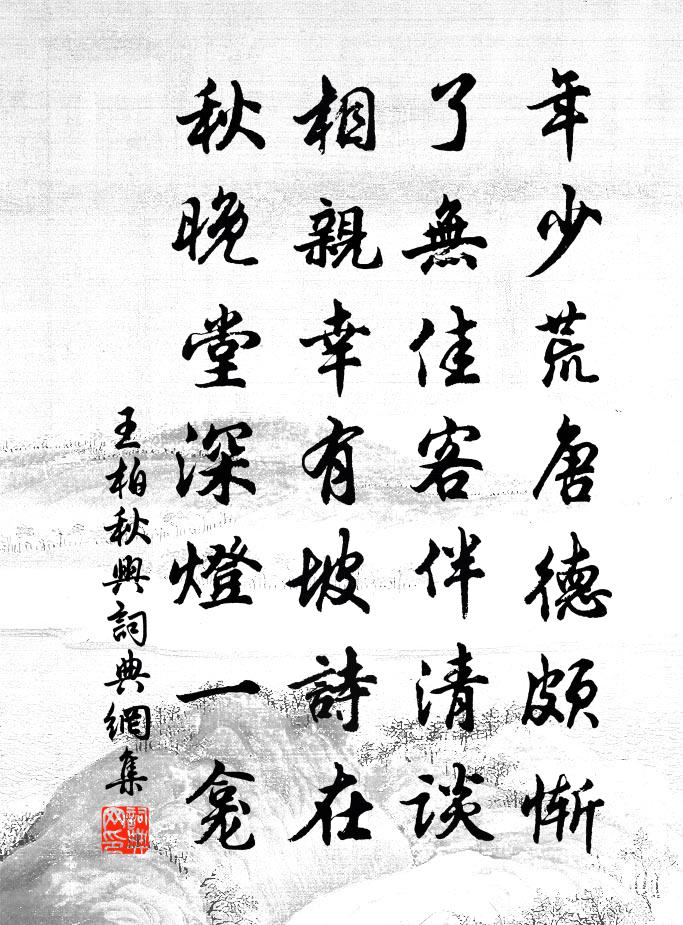 年少荒唐德頗慚
了無佳客伴清談
相親幸有坡詩在
秋晚堂深燈一龕
王柏秋興詞典網集